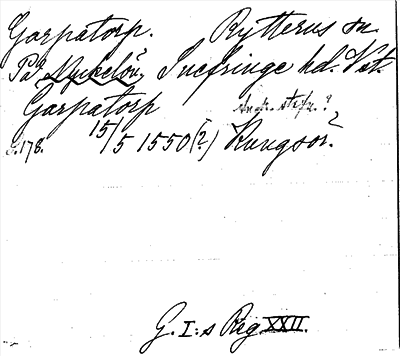 Garpatorp. Rytterns sn.
På Nyckelön, Snefringe hd. Vst.
Garpatorp
s. 178. 15/5 1550 (?) Kungsör.
G. I:s Reg XXII.